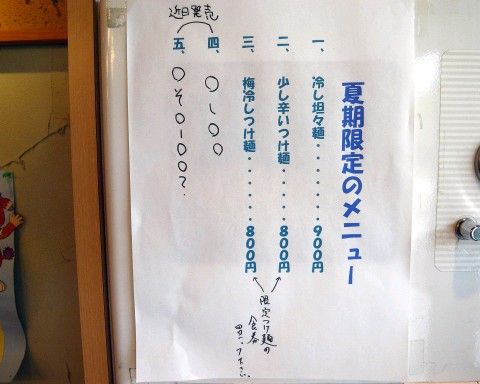 夏期限定のメニュー
一、冷し坦々麺・・・・・・・900円
二、少し辛いつけ麺・・・・・800円
三、梅冷しつけ麺・・・・・・800円
四、〇し〇〇
五、〇そ〇ー〇〇?
近日発売
限定つけ麺の
食券
買って下さい。